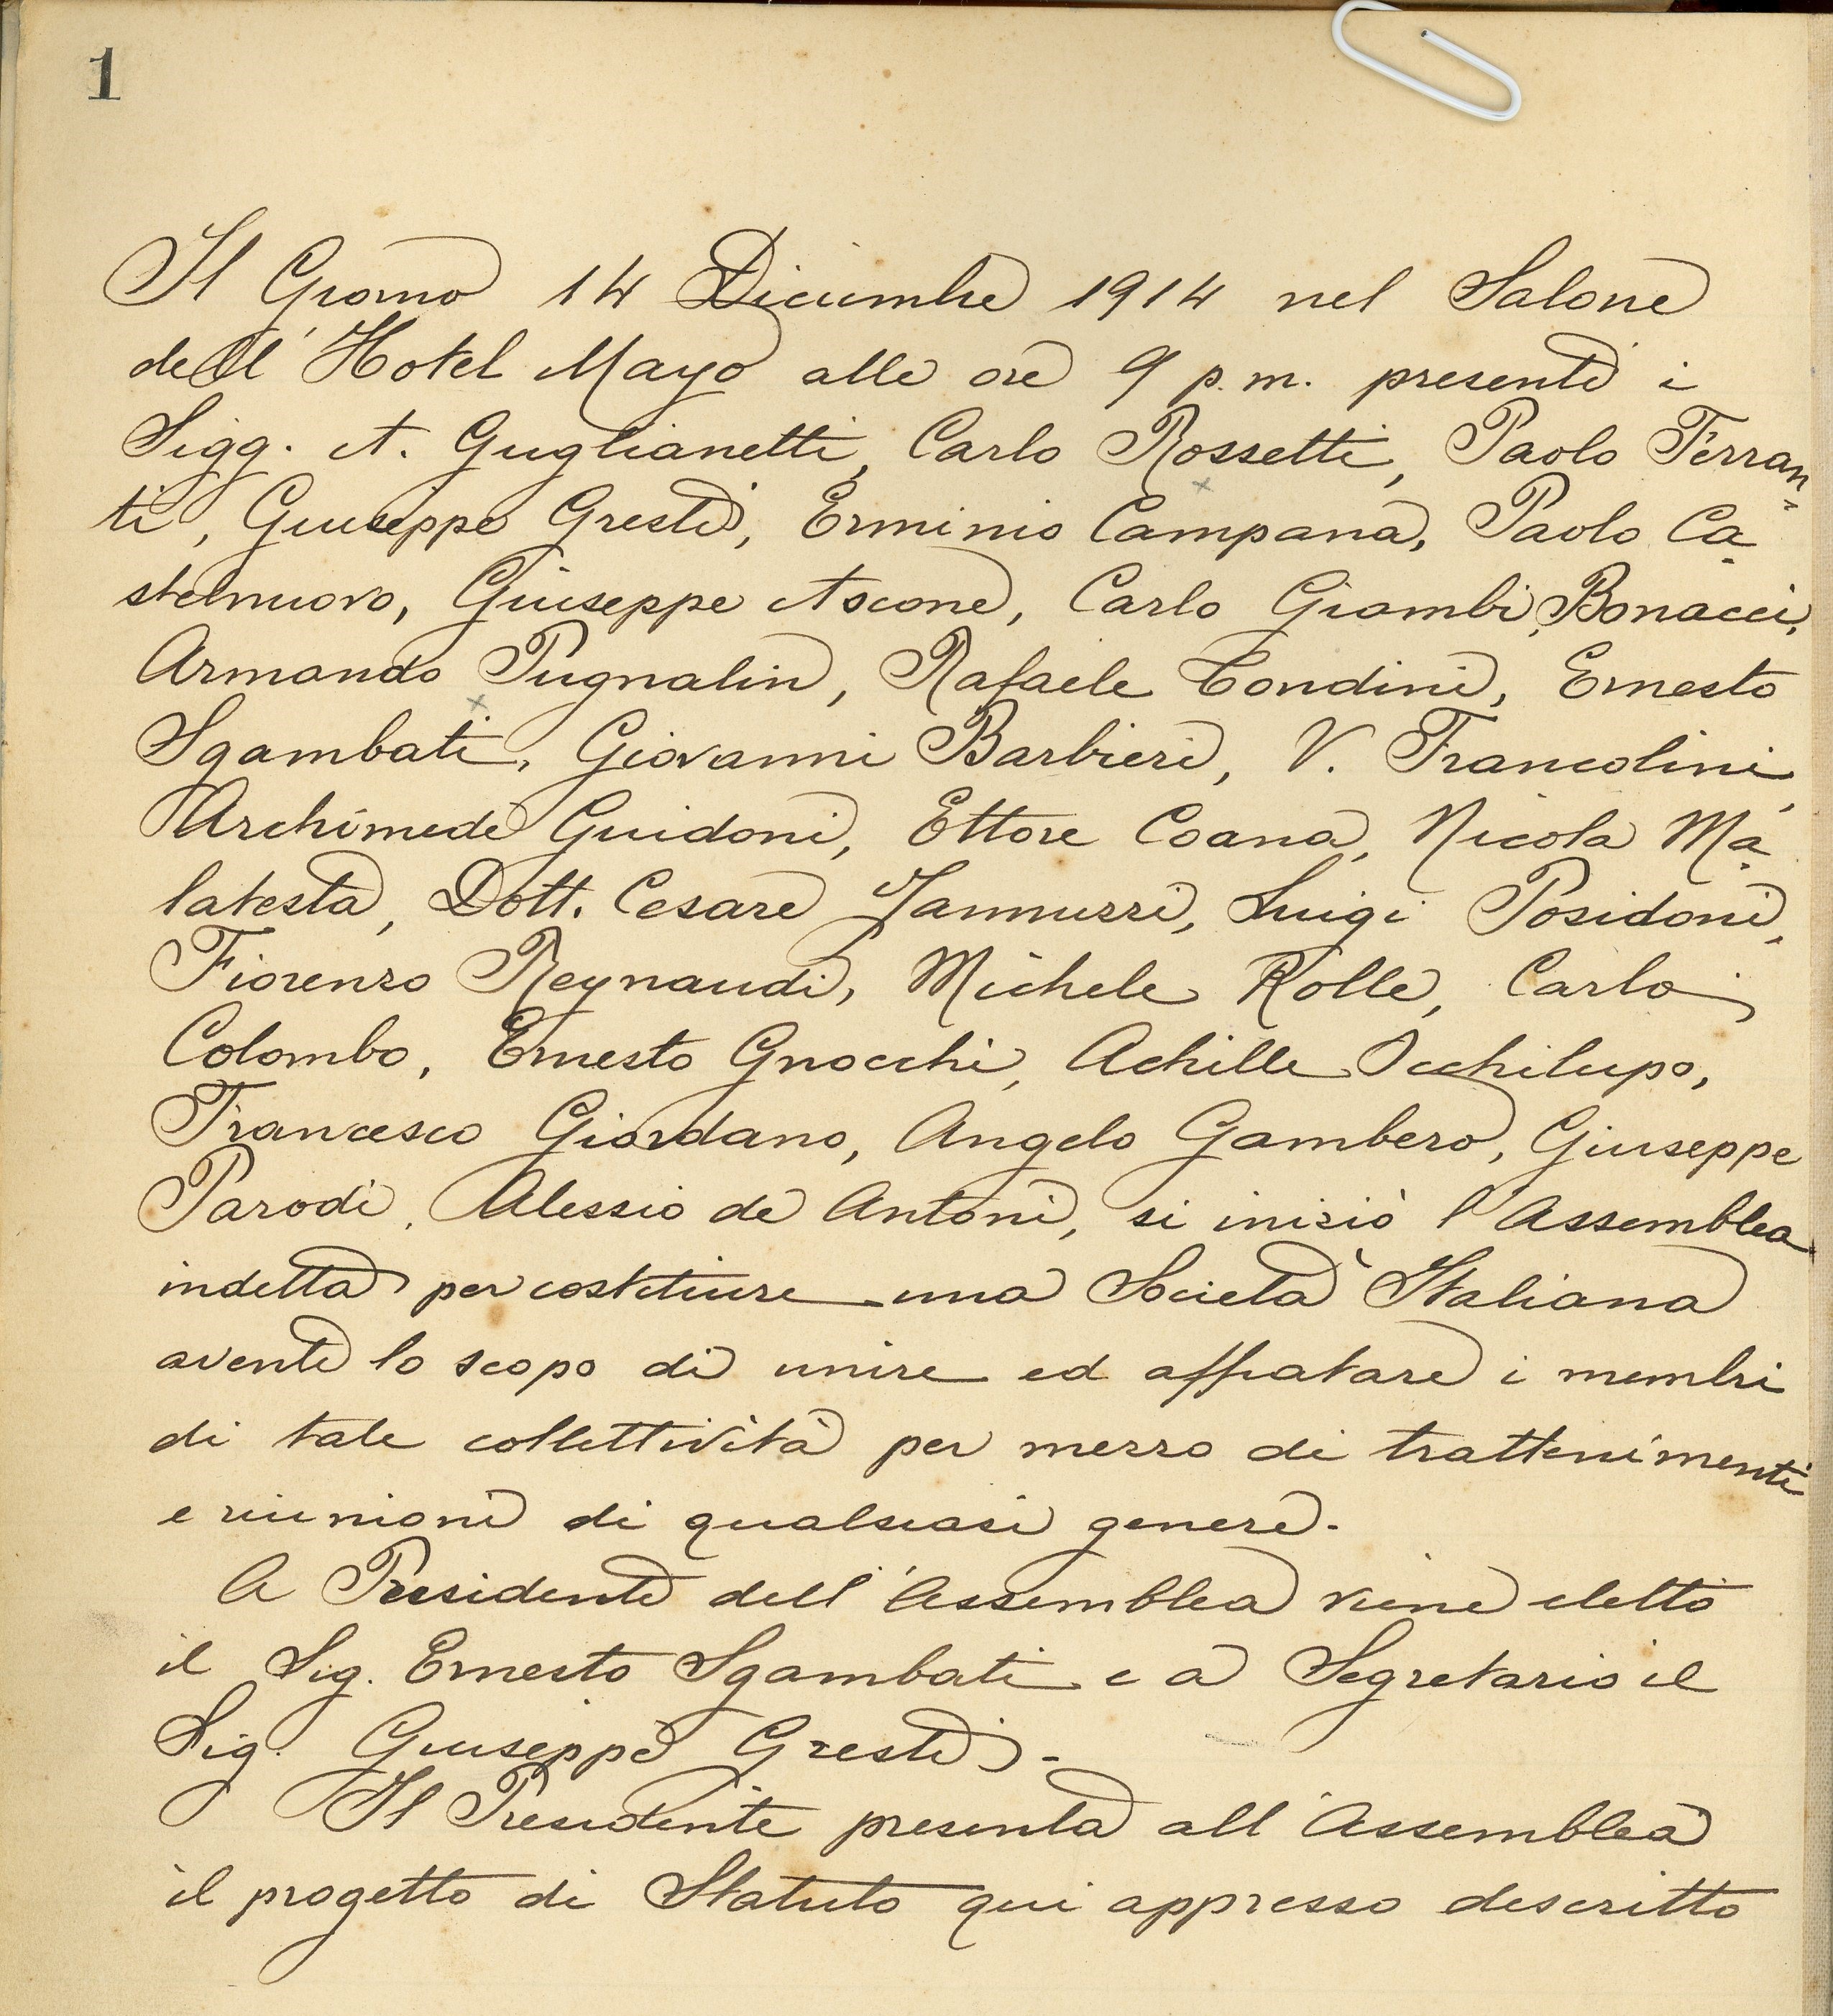 1
Il Giorno 14 Dicembre 1914 nel Salone
dell'Hotel Mayo alle ore 9 p.m. presenti i
Sigg. A. Guglianetti, Carlo Rossetti, Paolo Ferran-
ti, Giuseppe Gresti, Erminio Campana, Paolo Ca-
stelnuovo, Giuseppe Ascone, Carlo Giambi, Bonacci,
Armando Pugnalin, Rafaele Condini, Ernesto
Sgambati, Giovanni Barbieri, V. Francolini,
Archimede Guidoni, Ettore Coana, Nicola Ma-
latesta, Dott. Cesare Jannuzzi, Luigi Posidoni,
Fiorenzo Reynaudi, Michele Rolle, Carlo
Colombo, Ernesto Gnocchi, Achille Occhilupo,
Francesco Giordano, Angelo Gambero, Giuseppe
Parodi, Alessio de Antoni, si iniziò l'Assemblea
indetta per costituire una Società Italiana
avente lo scopo di unire ed affiatare i membri
di tale collettività per mezzo di trattenimenti
e riunioni di qualsiasi genere.
A Presidente dell'Assemblea viene eletto
il Sig. Ernesto Sgambati e a Segretario il
Sig. Giuseppe Gresti.-
Il Presidente presenta all'Assemblea
il progetto di Statuto qui appresso descritto